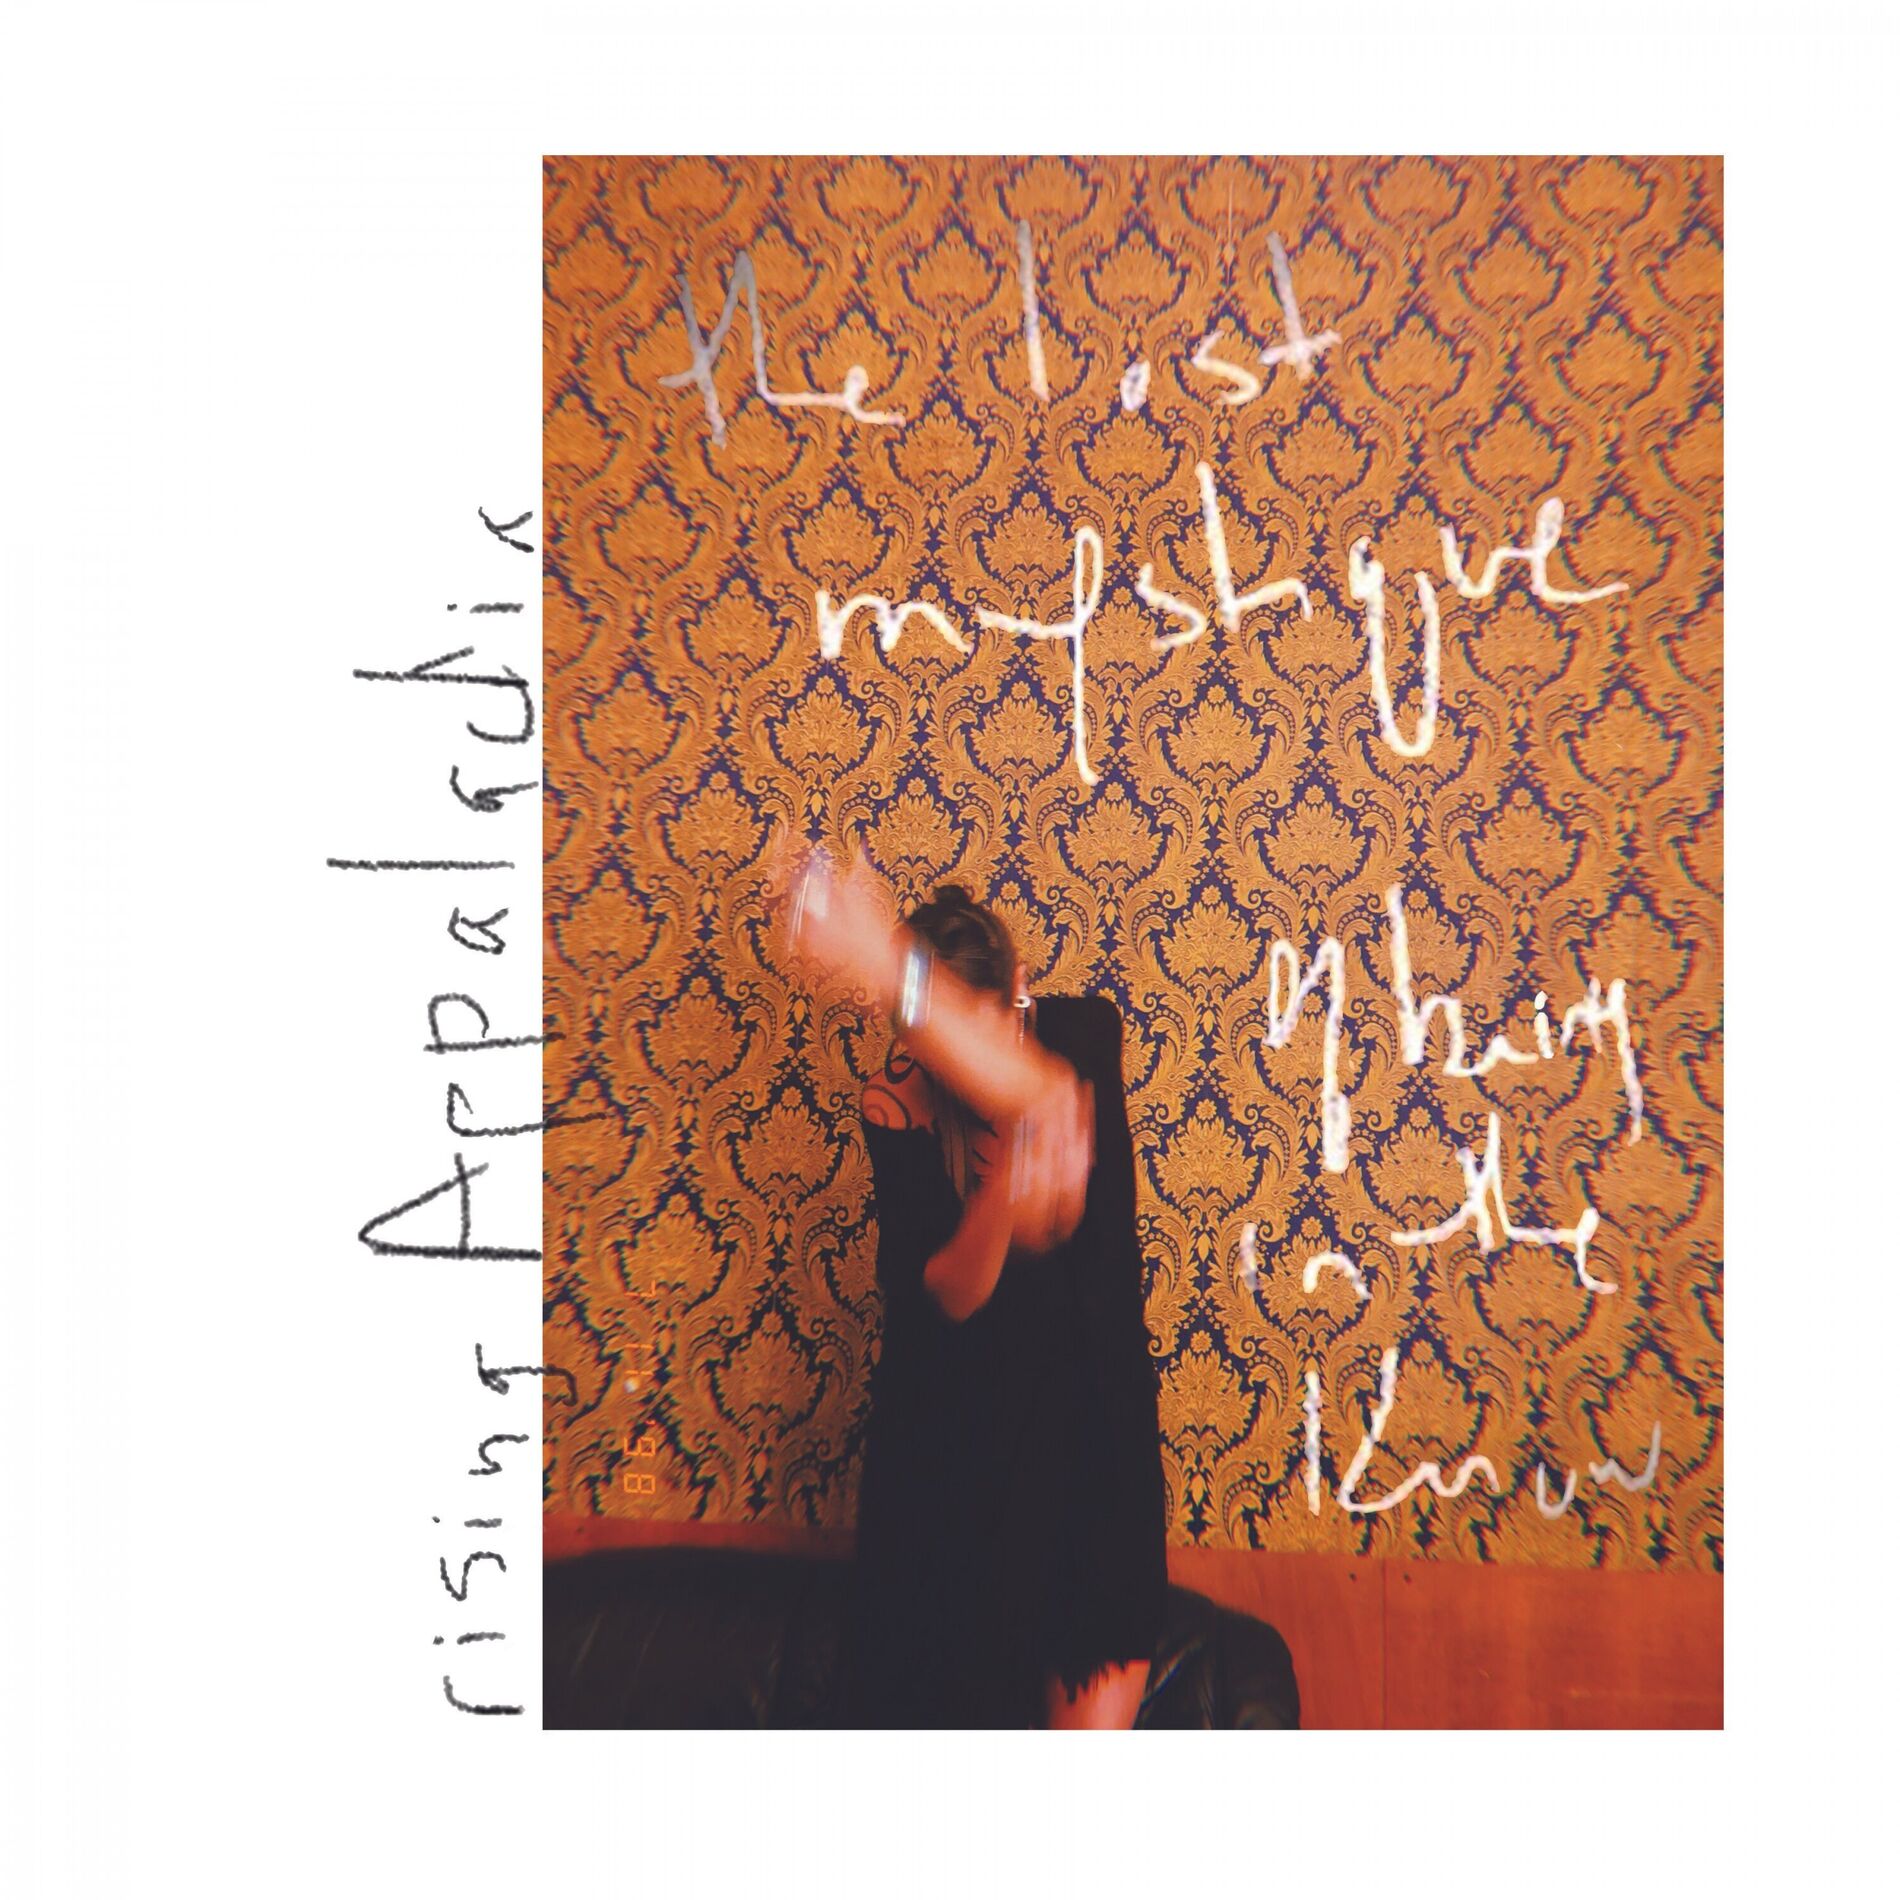 rising Appalachia
the lost
mystique
of being
in the
Know
7 16 '98